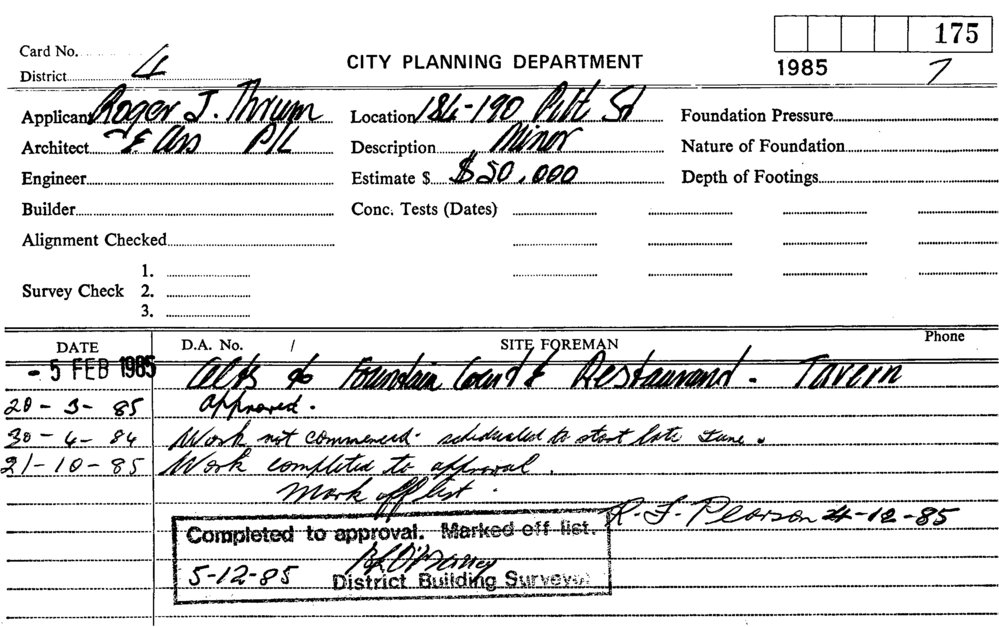 175
Card No.
District 4
CITY PLANNING DEPARTMENT
1985 7
Applicant Roger J. Thrum
Architect & Ass P/L
Engineer
Builder
Alignment Checked
Survey Check 1.
2.
3.
Location 184-190 Pitt St
Description Minor
Estimate $ $50,000
Conc. Tests (Dates)
Foundation Pressure
Nature of Foundation
Depth of Footings
DATE D.A. No. / SITE FOREMAN Phone
- 5 FEB 1985 Alts to Fountain Court & Restaurant - Tavern
20-3-85 Approved.
30-4-84 Work not commenced. scheduled to start late June.
21-10-85 Work completed to approval.
Mark off list.
R. F. Pearson 4-12-85
Completed to approval. Marked off list.
5-12-85
District Building Surveyor